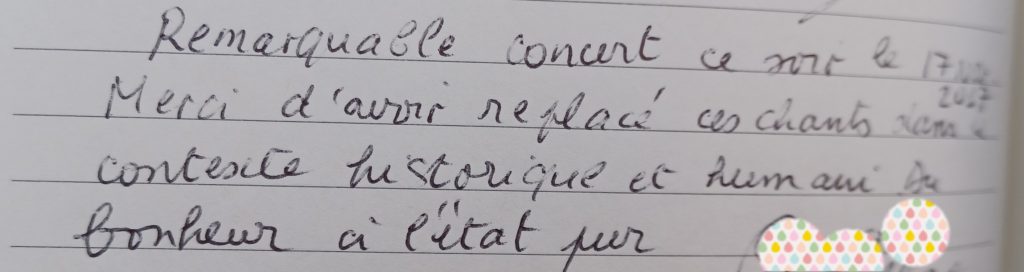 Remarquable concert ce soir le 17
2017
Merci d'avoir replacé ces chants dans
contexte historique et humain Du
bonheur à l'état pur